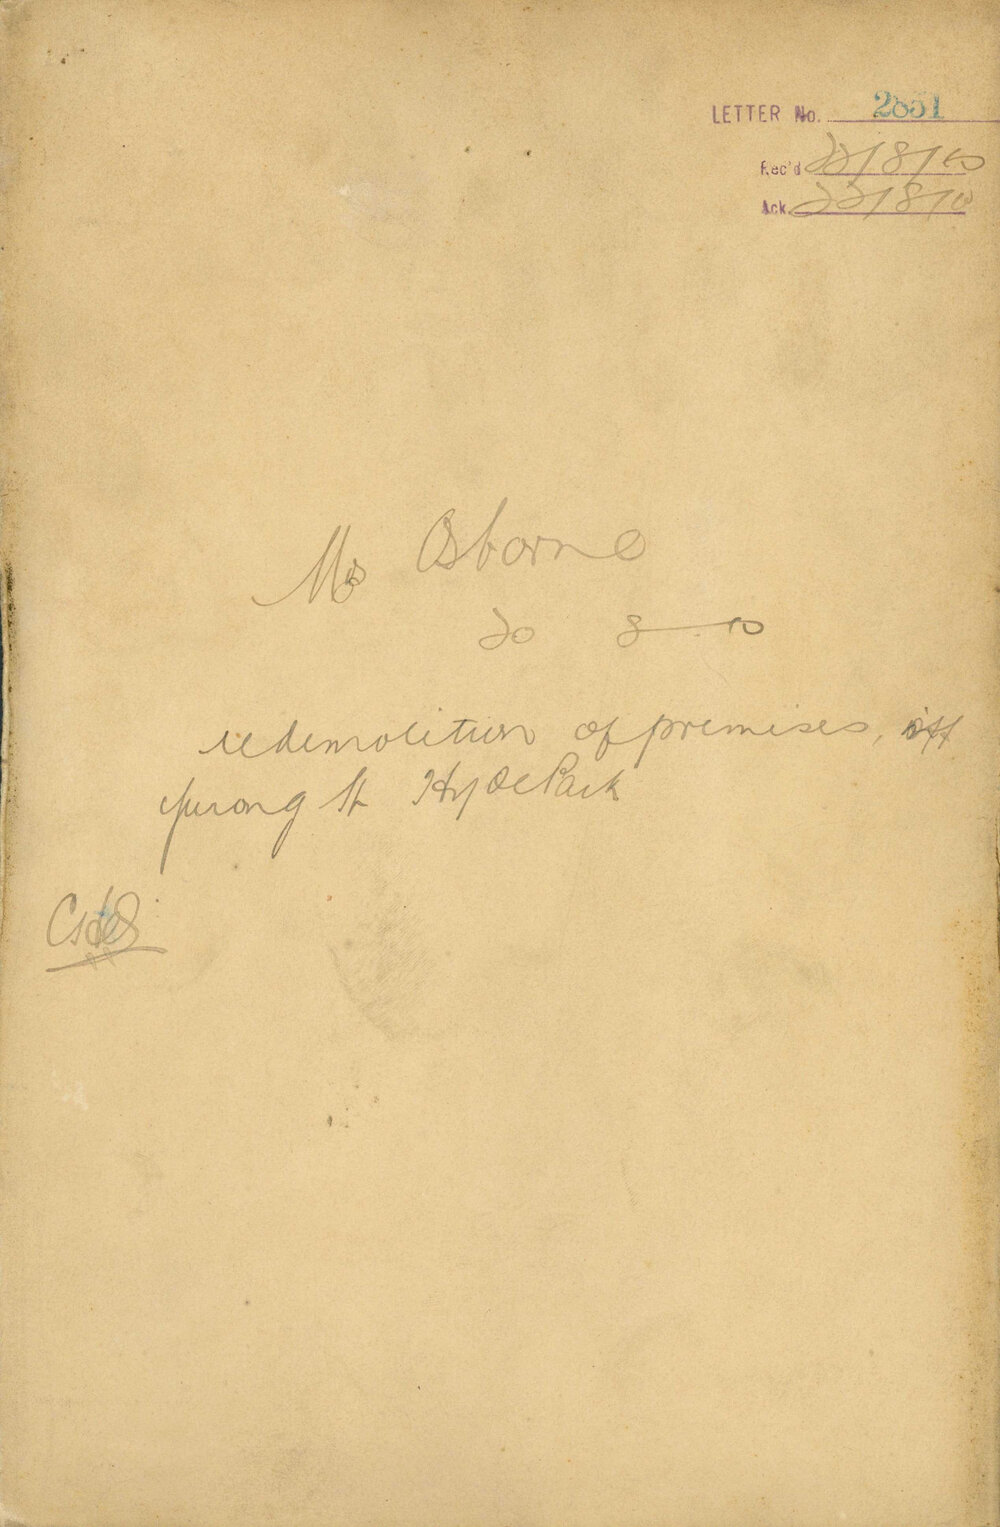 LETTER No. 2851
Rec'd 22/8/10
Ack. 22/8/10
Mrs Osborne
20 8 10
re demolition of premises, off
Yurong St Hyde Park